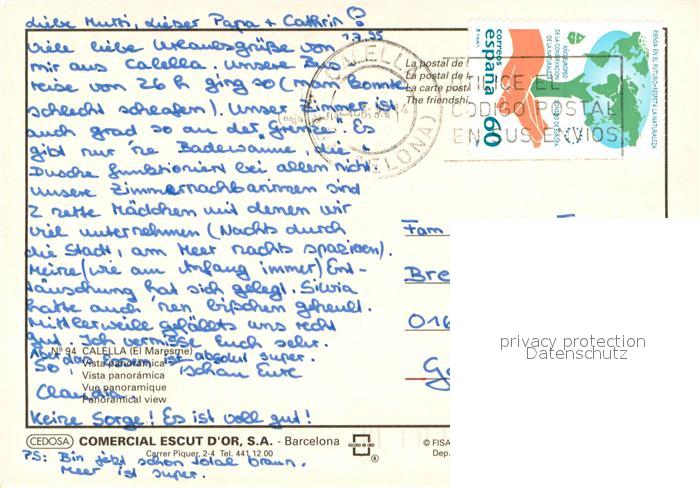 Liebe Mutti, lieber Papa + Cathrin!
1.7.95
Viele liebe Urlaubsgrüße von
mir aus Calella. Unsere Bus
reise von 26 h ging so (nur
schlecht schlafen). Unser Zimmer ist
auch grad so an der Grenze! Es
gibt nur 'ne Badewanne. Die
Dusche funktioniert bei allen nicht.
Unsere Zimmernachbarinnen sind
2 nette Mädchen mit denen wir
viel unternehmen (Nachts durch
die Stadt, am Meer nachts spazieren).
Meine (wie am Anfang immer) Ent-
täuschung hat sich gelegt. Silvia
hatte auch 'nen bißchen geheult.
Mittlerweile gefällts uns recht
gut. Ich vermisse Euch sehr.
Aber das Essen ist absolut super.
So, tschau Eure
Claudia.
Keine Sorge! Es ist voll gut!
PS: Bin jetzt schon total braun.
Meer ist super.
La postal de l
La postal de l
La carte post
The friendshi
CALELLA
(BARCELONA)
UTILICE EL
CODIGO POSTAL
EN SUS ENVIOS
correos
españa
60
AÑO EUROPEO
DE LA CONSERVACION
DE LA NATURALEZA
CONSEJO DE EUROPA
PIENSA EN EL FUTURO=RESPETA LA NATURALEZA
Fam
Bre
016
Ge
privacy protection
Datenschutz
Nº 94 CALELLA (El Maresme)
Vista panoràmica
Vista panorámica
Vue panoramique
Panoramical view
CEDOSA COMERCIAL ESCUT D'OR, S.A. - Barcelona
Carrer Piquer, 2-4 Tel. 441 12 00
ESCUDO DE ORO
®
© FISA
Dep.